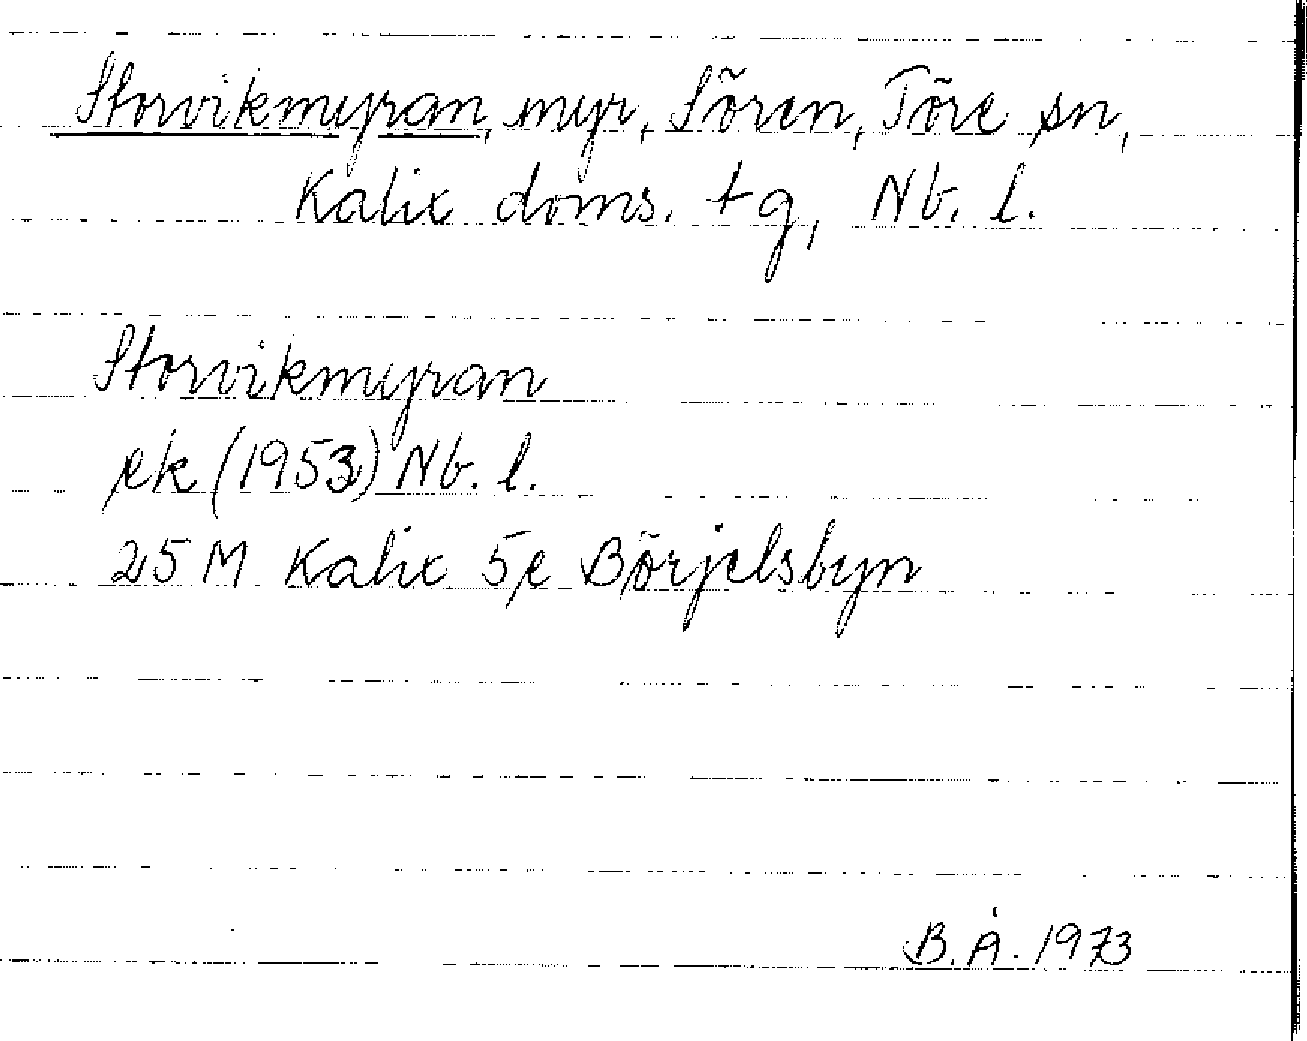 Storvikmyran, myr, Sören, Töre sn,
Kalix doms. tg, Nb. l.
Storvikmyran
ek (1953) Nb. l.
25 M Kalix 5e Börjelsbyn
B.Å. 1973